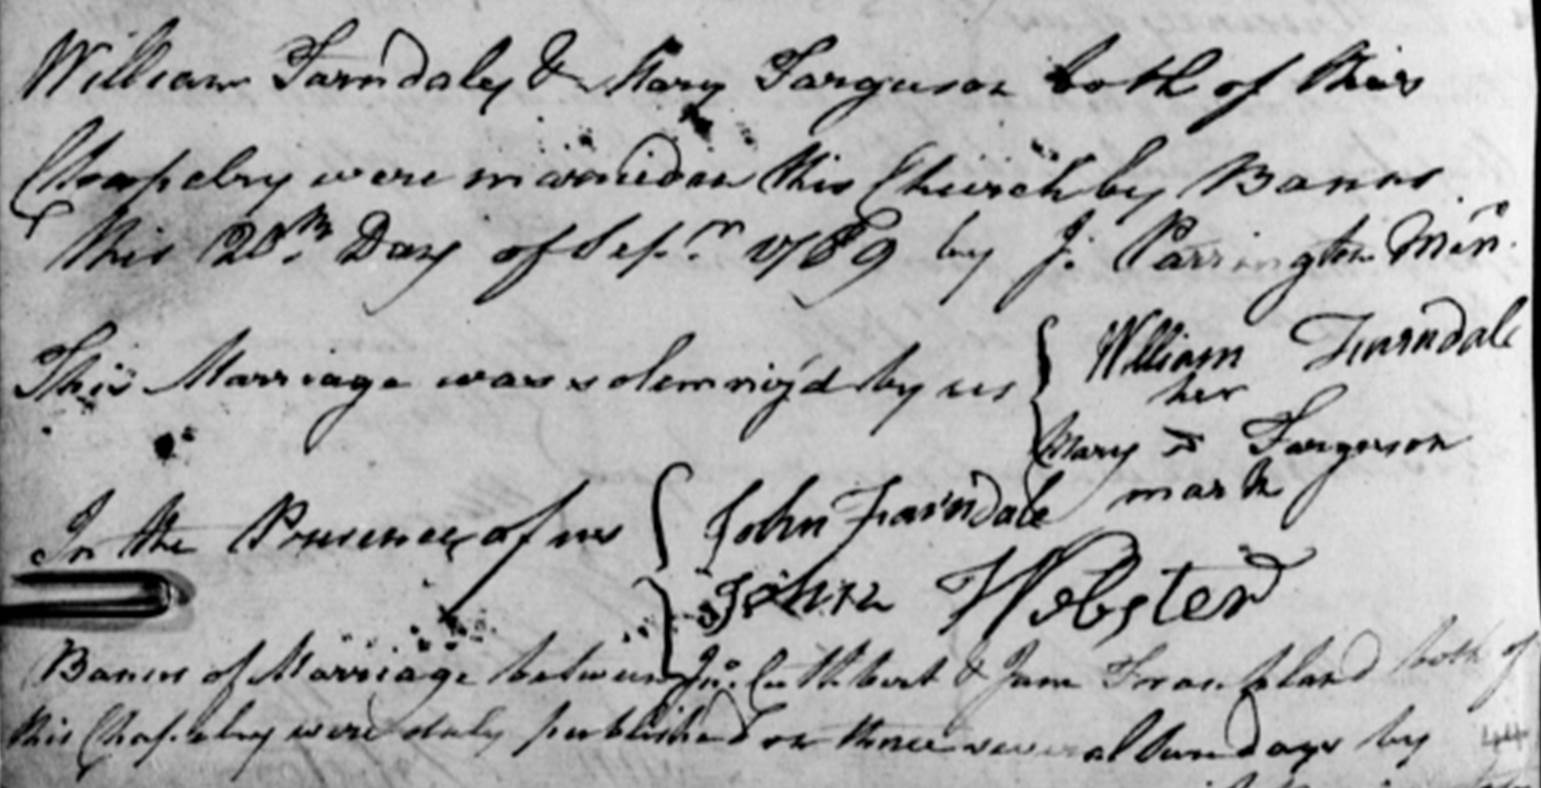 William Farndaly & Mary Farguson both of this
Chapelry were married in this Church by Banns
this 20th Day of Sepr. 1789 by J. Parrington Minr.
This Marriage was solemniz'd by us { William Farndale
her
Mary X Fargerson
mark
In the Presence of us { John Farndale
John Webster
Banns of Marriage between Jn. Cuthbert & Jane both of
this Chapelry were duly published on three several Sundays by